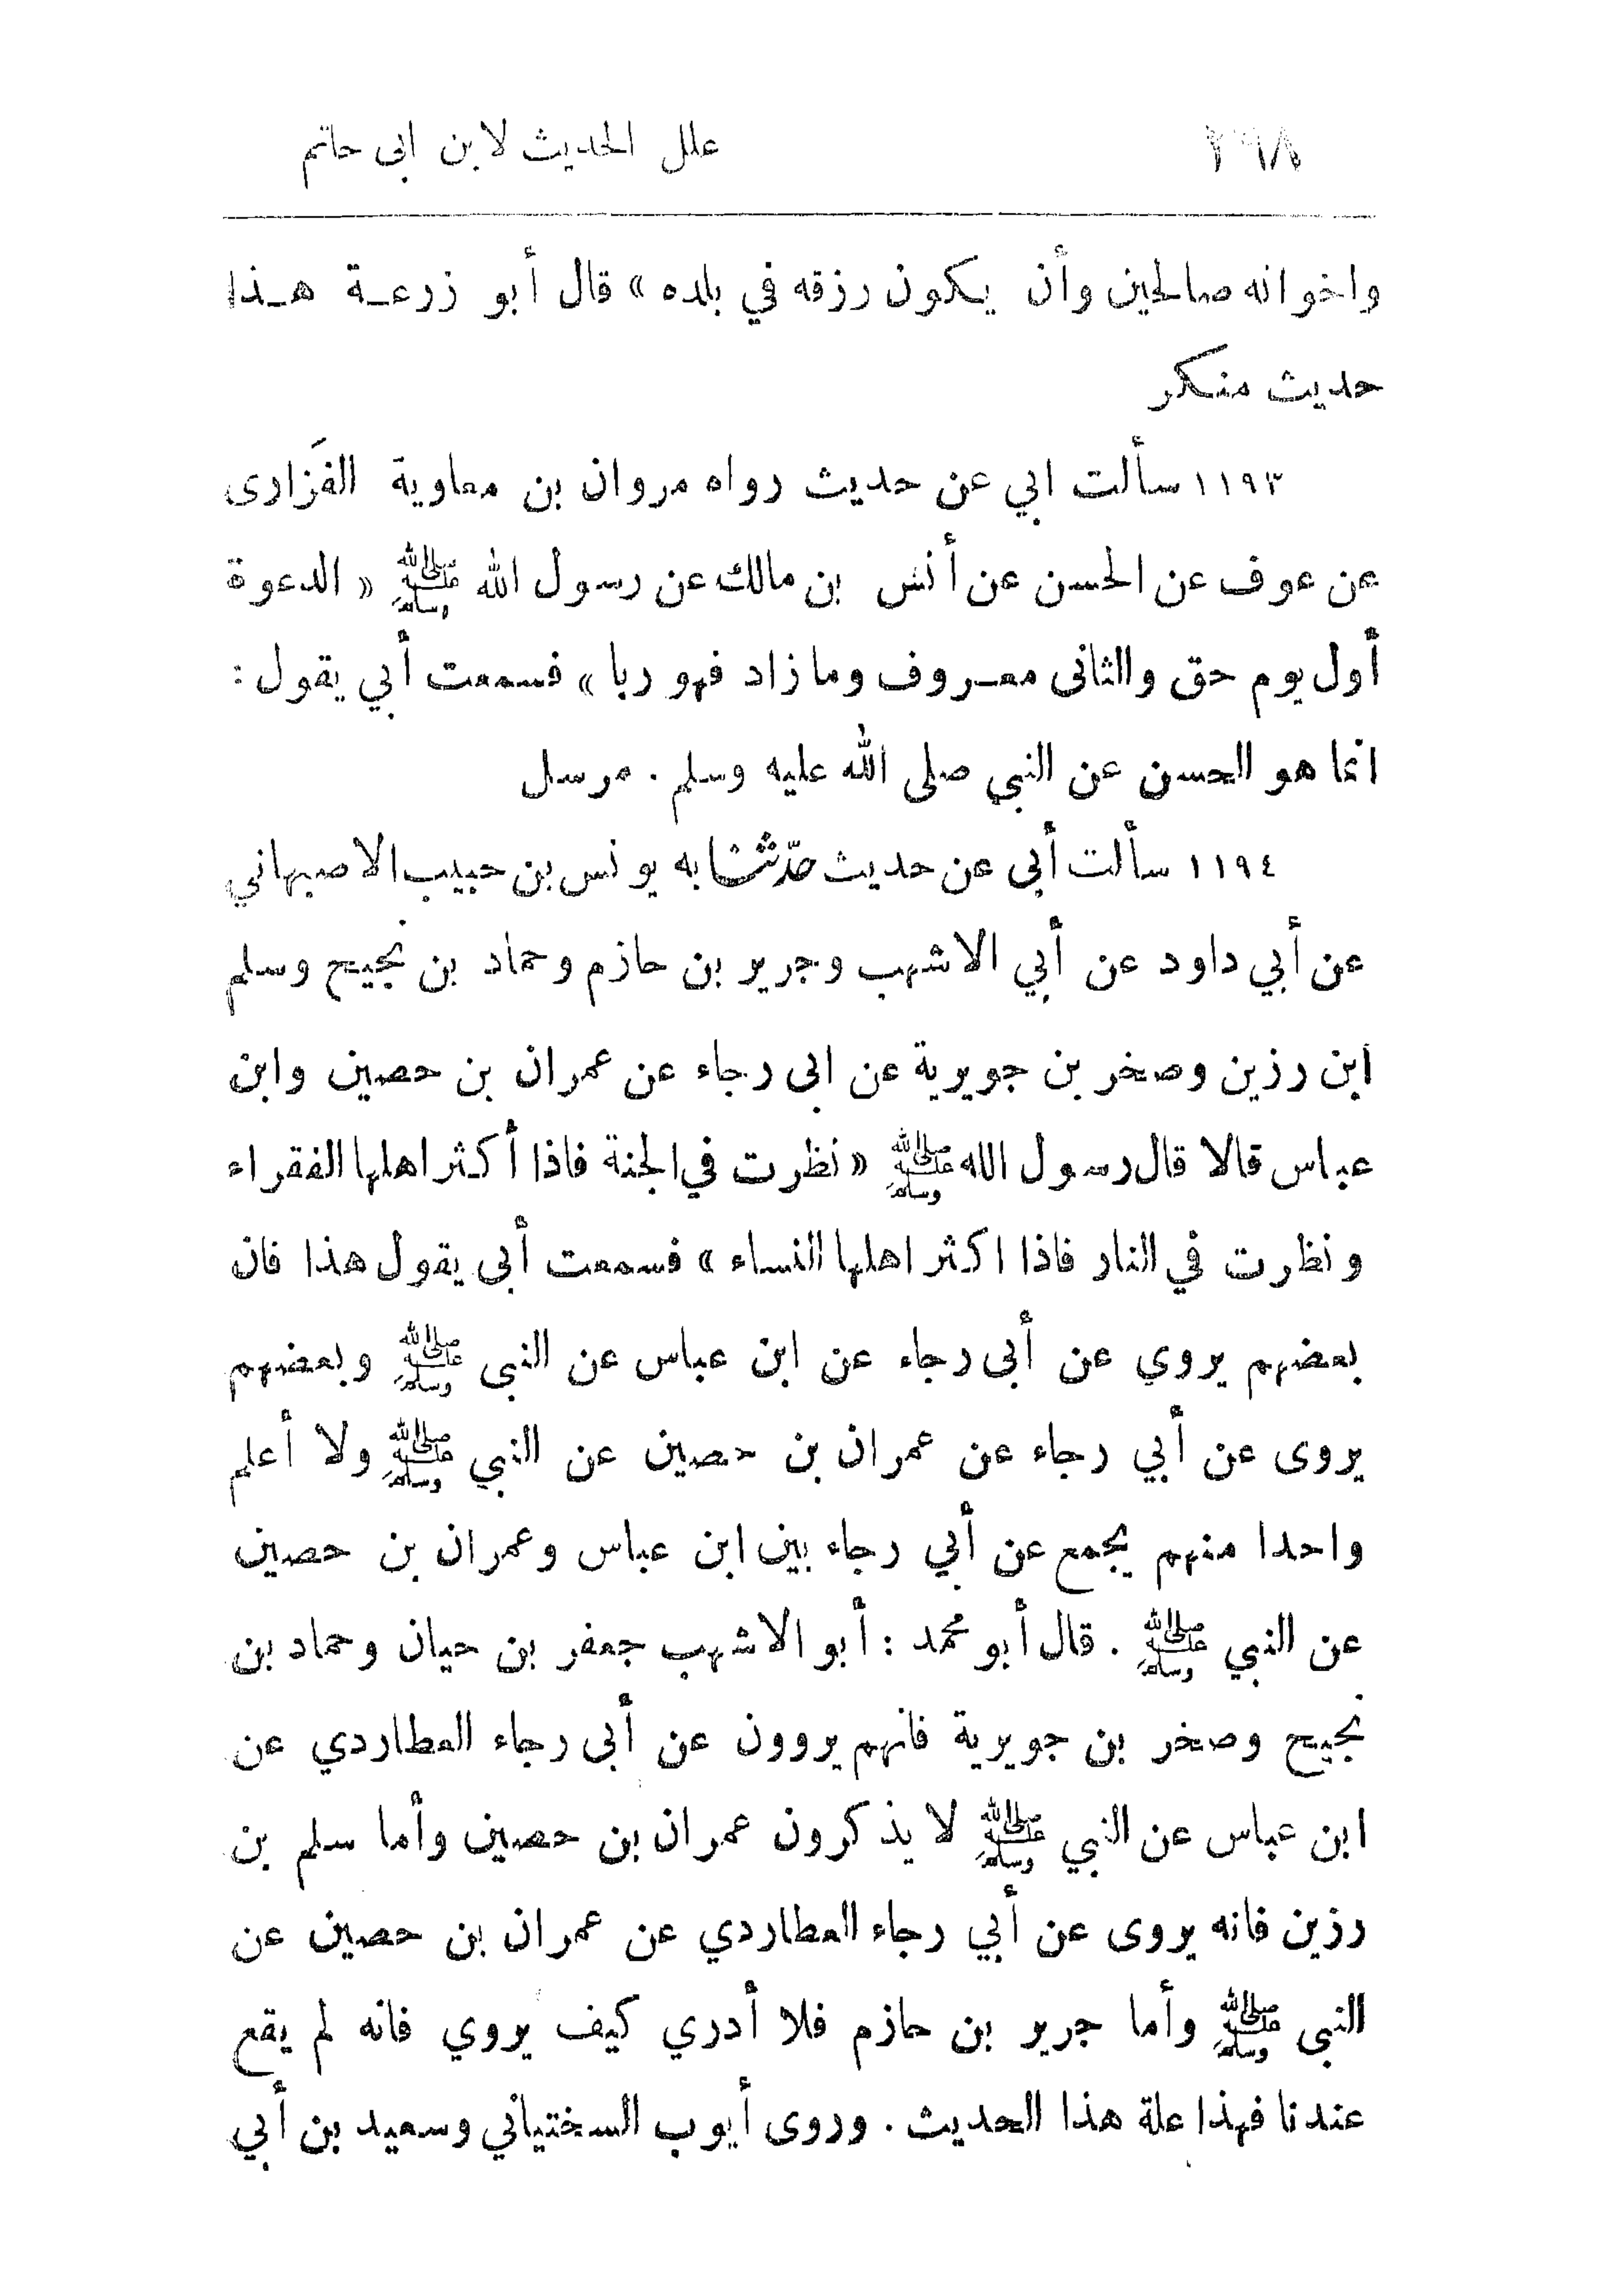 ٣٩٨ علل الحديث لابن ابى حاتم
واخوانه صالحين وأن يكون رزقه في بلده » قال أبو زرعة هذا
حديث منكر
١١٩٣ سألت ابي عن حديث رواه مروان بن معاوية الفَزارى
عن عوف عن الحسن عن أنس بن مالك عن رسول الله ﷺ « الدعوة
أول يوم حق والثانى معروف وما زاد فهو ربا » فسمعت أبي يقول :
انما هو الحسن عن النبي صلى الله عليه وسلم . مرسل
١١٩٤ سألت أبى عن حديث حدّثنا به يونس بن حبيب الاصبهاني
عن أبي داود عن أبي الاشهب وجرير بن حازم وحماد بن نجيح وسلم
ابن رزين وصخر بن جويرية عن ابى رجاء عن عمران بن حصين وابن
عباس قالا قال رسول الله ﷺ « نظرت في الجنة فاذا أكثر اهلها الفقراء
ونظرت في النار فاذا اكثر اهلها النساء » فسمعت أبى يقول هذا فان
بعضهم يروي عن أبى رجاء عن ابن عباس عن النبى ﷺ وبعضهم
يروى عن أبي رجاء عن عمران بن حصين عن النبي ﷺ ولا أعلم
واحدا منهم يجمع عن أبي رجاء بين ابن عباس وعمران بن حصين
عن النبي ﷺ . قال أبو محمد : أبو الاشهب جعفر بن حيان وحماد بن
نجيح وصخر بن جويرية فانهم يروون عن أبى رجاء العطاردي عن
ابن عباس عن النبي ﷺ لا يذكرون عمران بن حصين وأما سلم بن
رزين فانه يروى عن أبي رجاء العطاردي عن عمران بن حصين عن
النبى ﷺ وأما جرير بن حازم فلا أدري كيف يروي فانه لم يقع
عندنا فهذا علة هذا الحديث . وروى أيوب السختياني وسعيد بن أبي